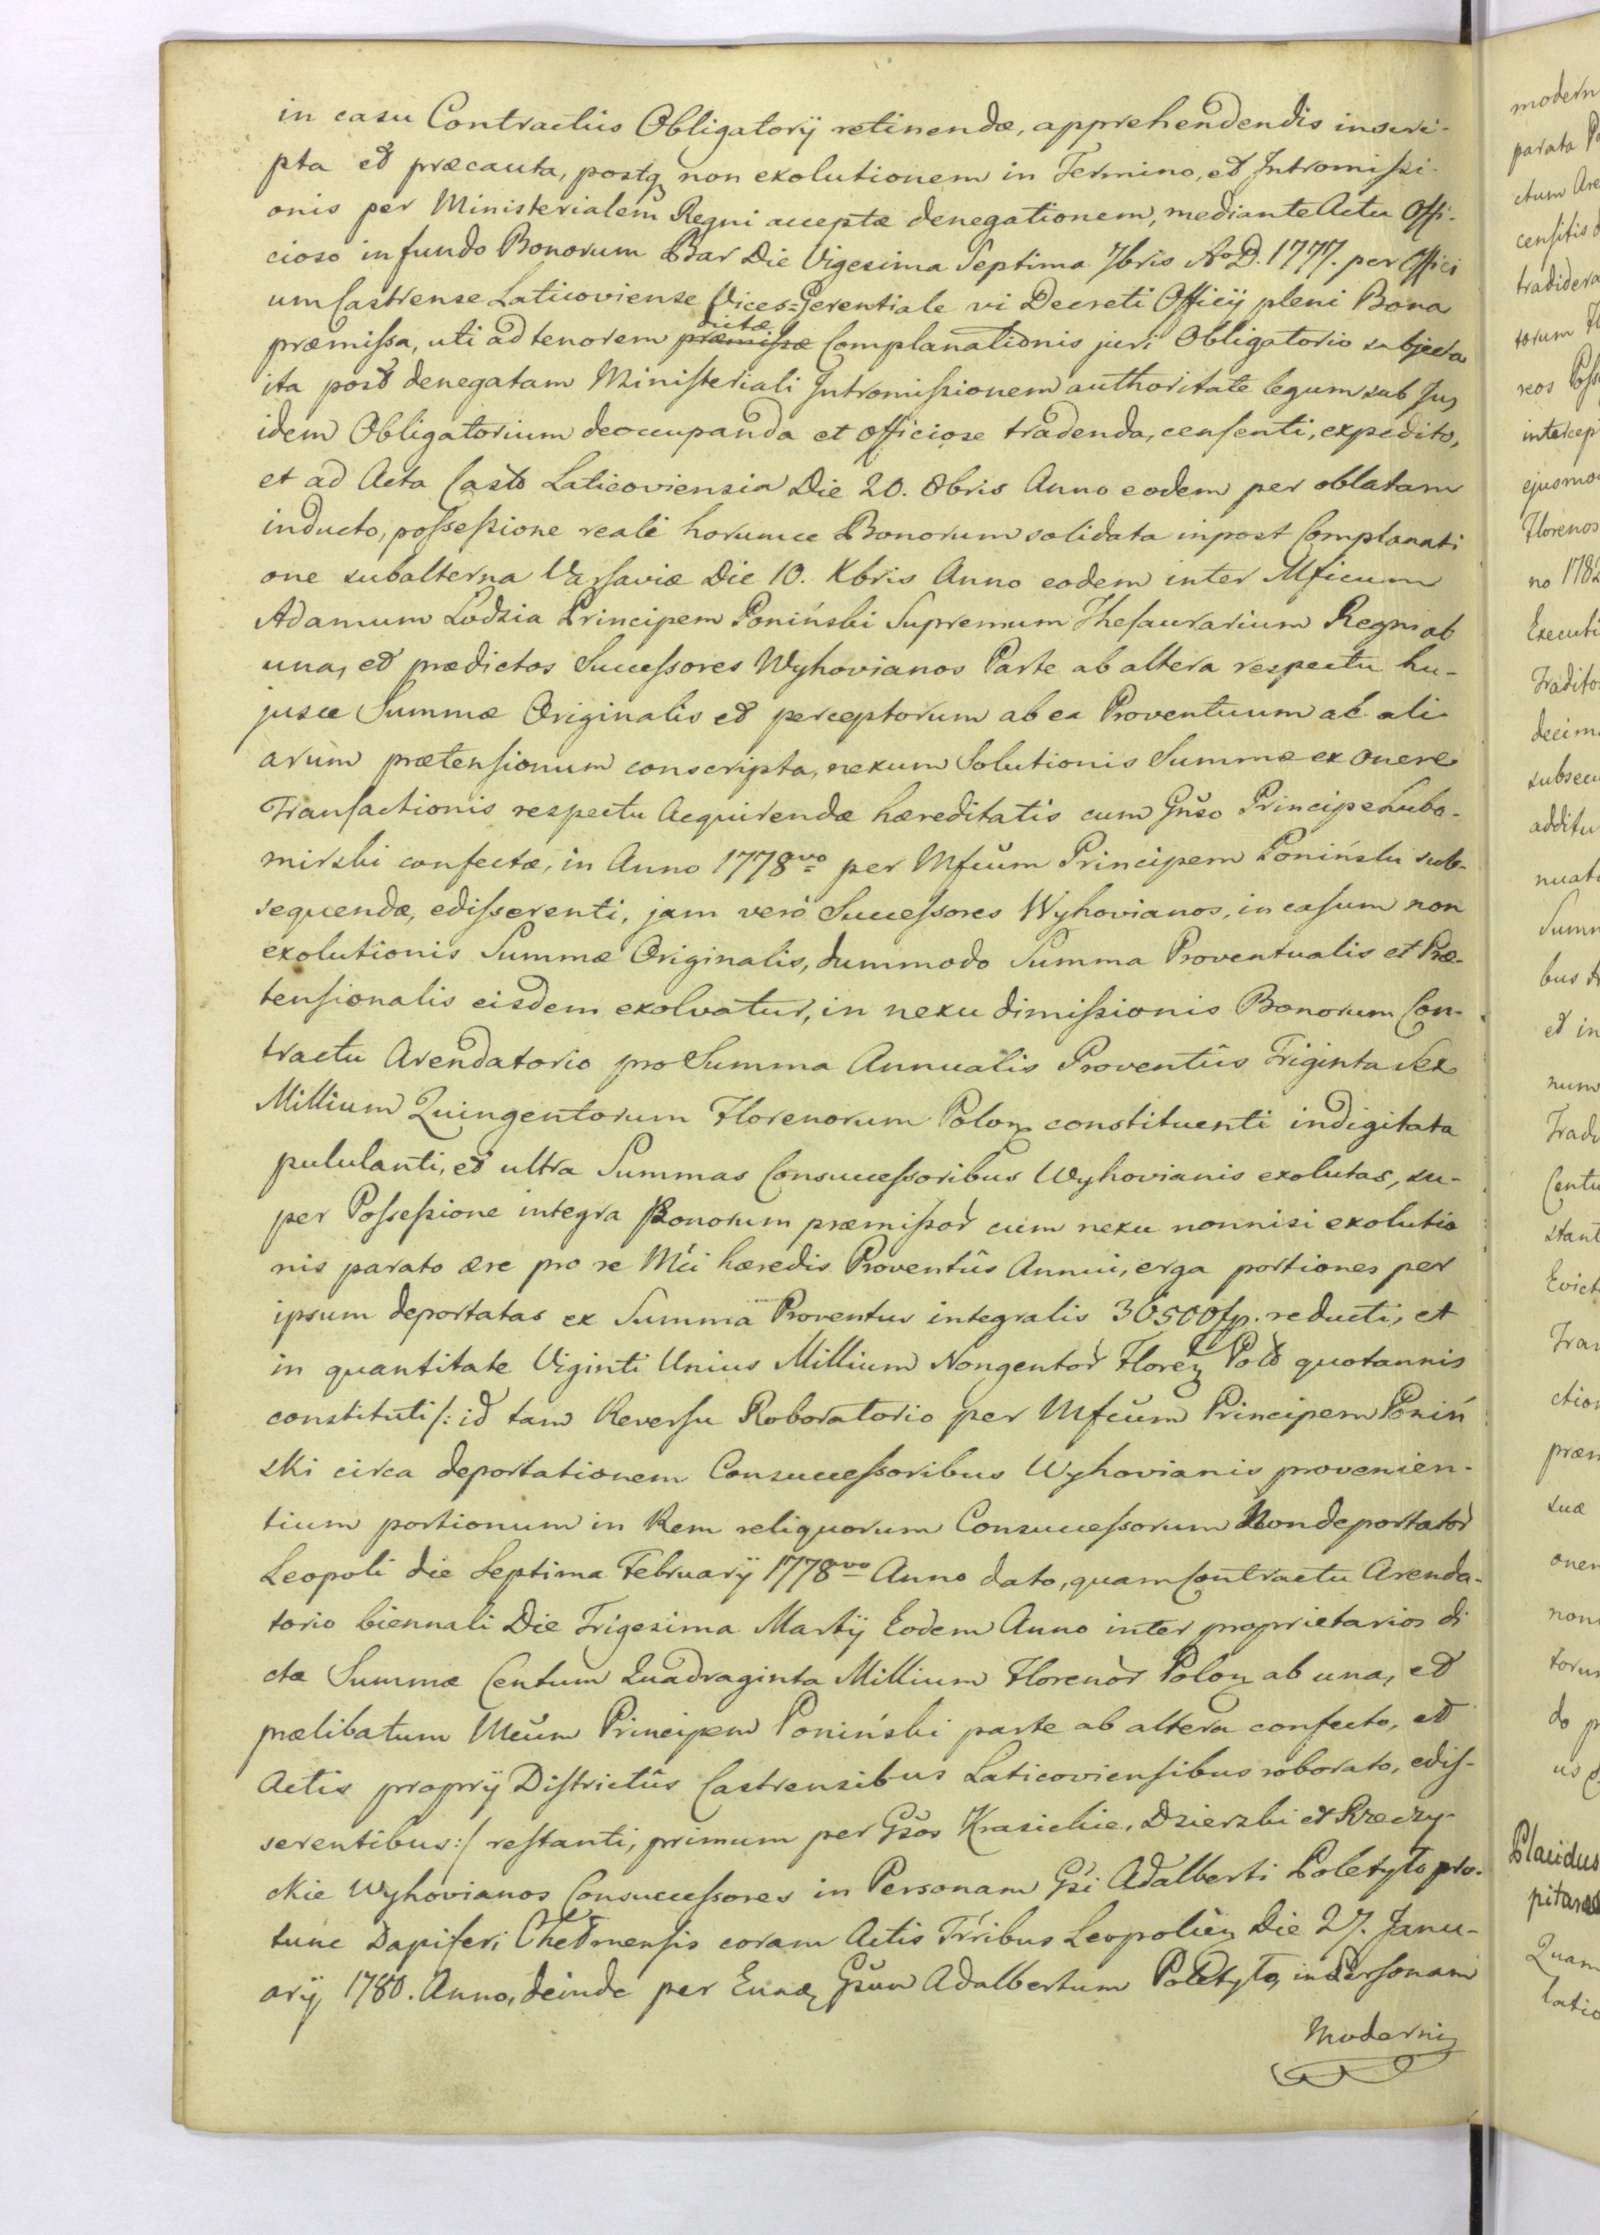 in casu Contractûs Obligatorÿ retinendæ, apprehendendis inscri-
pta et præcauta, postq non exolutionem in Termino, et Intromissi-
onis per Ministerialem Regni acceptæ denegationem, mediante Actu Offi-
cioso in fundo Bonorum Bar Die Vigesima Septima 7bris Ao D. 1777. per Offici
um Castrense Laticoviense Vices=Gerentiale vi Decreti Officÿ pleni Bona
dictæ
præmissa, uti ad tenorem præmissæ Complanationis juri Obligatorio subjecta
ita post denegatam Ministeriali Intromissionem authoritate legum sub Jus
idem Obligatorium deoccupanda et officiose tradenda, censenti, expedito,
et ad Acta Casto Laticoviensia Die 20. 8bris Anno eodem per oblatam
inducto, possessione reali horumce Bonorum solidata inpost Complanati
one subalterna Varsaviæ Die 10. Xbris Anno eodem inter Mficum
Adamum Lodzia Principem Poniński Supremum Thesaurarium Regni ab
una, et prædictos Successores Wyhovianos Parte ab altera respectu hu-
jusce Summæ Originalis et perceptorum ab ea Proventuum ac ali
arum prætensionum conscripta, nexum Solutionis Summæ ex onere
Transactionis respectu Acquirendæ hæreditatis cum Gnso Principe Lubo-
mirski confectæ, in Anno 1778vo per Mfcum Principem Poniński sub-
sequendæ, edisserenti, jam verò Successores Wyhovianos, in casum non
exolutionis Summæ Originalis, dummodo Summa Proventualis et Præ-
tensionalis eisdem exolvatur, in nexu dimissionis Bonorum Con-
tractu Arendatorio pro Summa Annualis Proventûs Triginta Sex
Millium Quingentorum Florenorum Polon constituenti indigitata
pululanti, et ultra Summas Consuccessoribus Wyhovianis exolutas, su-
per Possessione integra Bonorum præmissor cum nexu nonnisi exolutio
nis parato ære pro re Mci hæredis Proventûs Annui, erga portiones per
ipsum deportatas ex Summa Proventus integralis 36500 fp. reducti, et
in quantitate Viginti Unius Millium Nongentor Floren Pol quotannis
constituti /: id tam Reversu Roboratorio per Mfcum Principem Poniń
ski circa deportationem Consuccessoribus Wyhovianis provenien-
tium portionum in Rem reliquorum Consuccessorum Nondeportator
Leopoli die Septima Februarÿ 1778vo Anno dato, quam Contractu Arenda-
torio biennali Die Trigesima Martÿ Eodem Anno inter proprietarios di
ctæ Summæ Centum Quadraginta Millium Florenor Polon ab una, et
prælibatum Mcum Principem Poniński parte ab altera confecto, et
Actis proprÿ Districtûs Castrensibus Laticoviensibus roborato, edis-
serentibus :/ restanti, primum per Gsos Krasickie, Dzierzbi et Rzeczy-
ckie Wyhovianos Consuccessores in Personam Gsi Adalberti Poletyło pro-
tunc Dapiferi Chełmensis coram Actis Trribus Leopolien Die 27. Janu-
arÿ 1780. Anno, deinde per Eund Gsum Adalbertum Poletyło, in Personam
Moderni